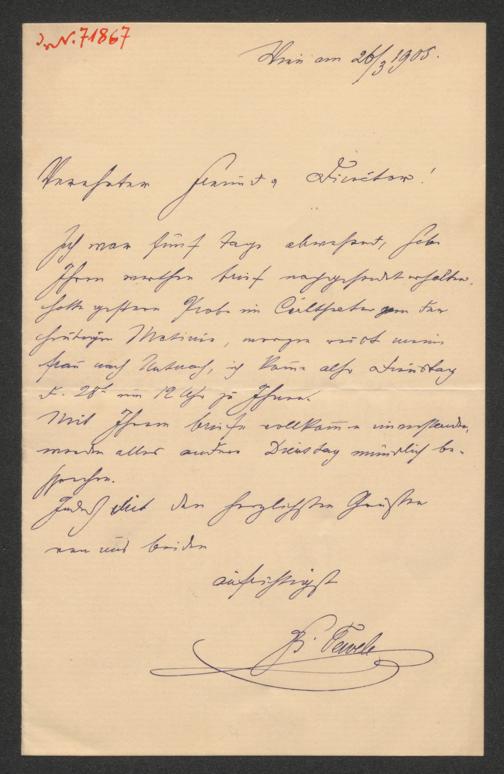 I. N. 71867
Wien am 26/3 1905.
Verehrter Freund u Director!
Ich war fünf Tage abwesend, habe
Ihren werthen Brief nachgesendet erhalten,
hatte gestern Probe im Carltheater zu der
heutigen Matinée, morgen reist meine
Frau nach, ich komme also Dienstag
d. 28t um 12 Uhr zu Ihnen.
Mit Ihrem Briefe vollkommen einverstanden,
werden alles andere Dienstag mündlich be-
sprechen.
Indeß mit den herzlichsten Grüßen
von uns beiden
aufrichtigst
F. Tewele